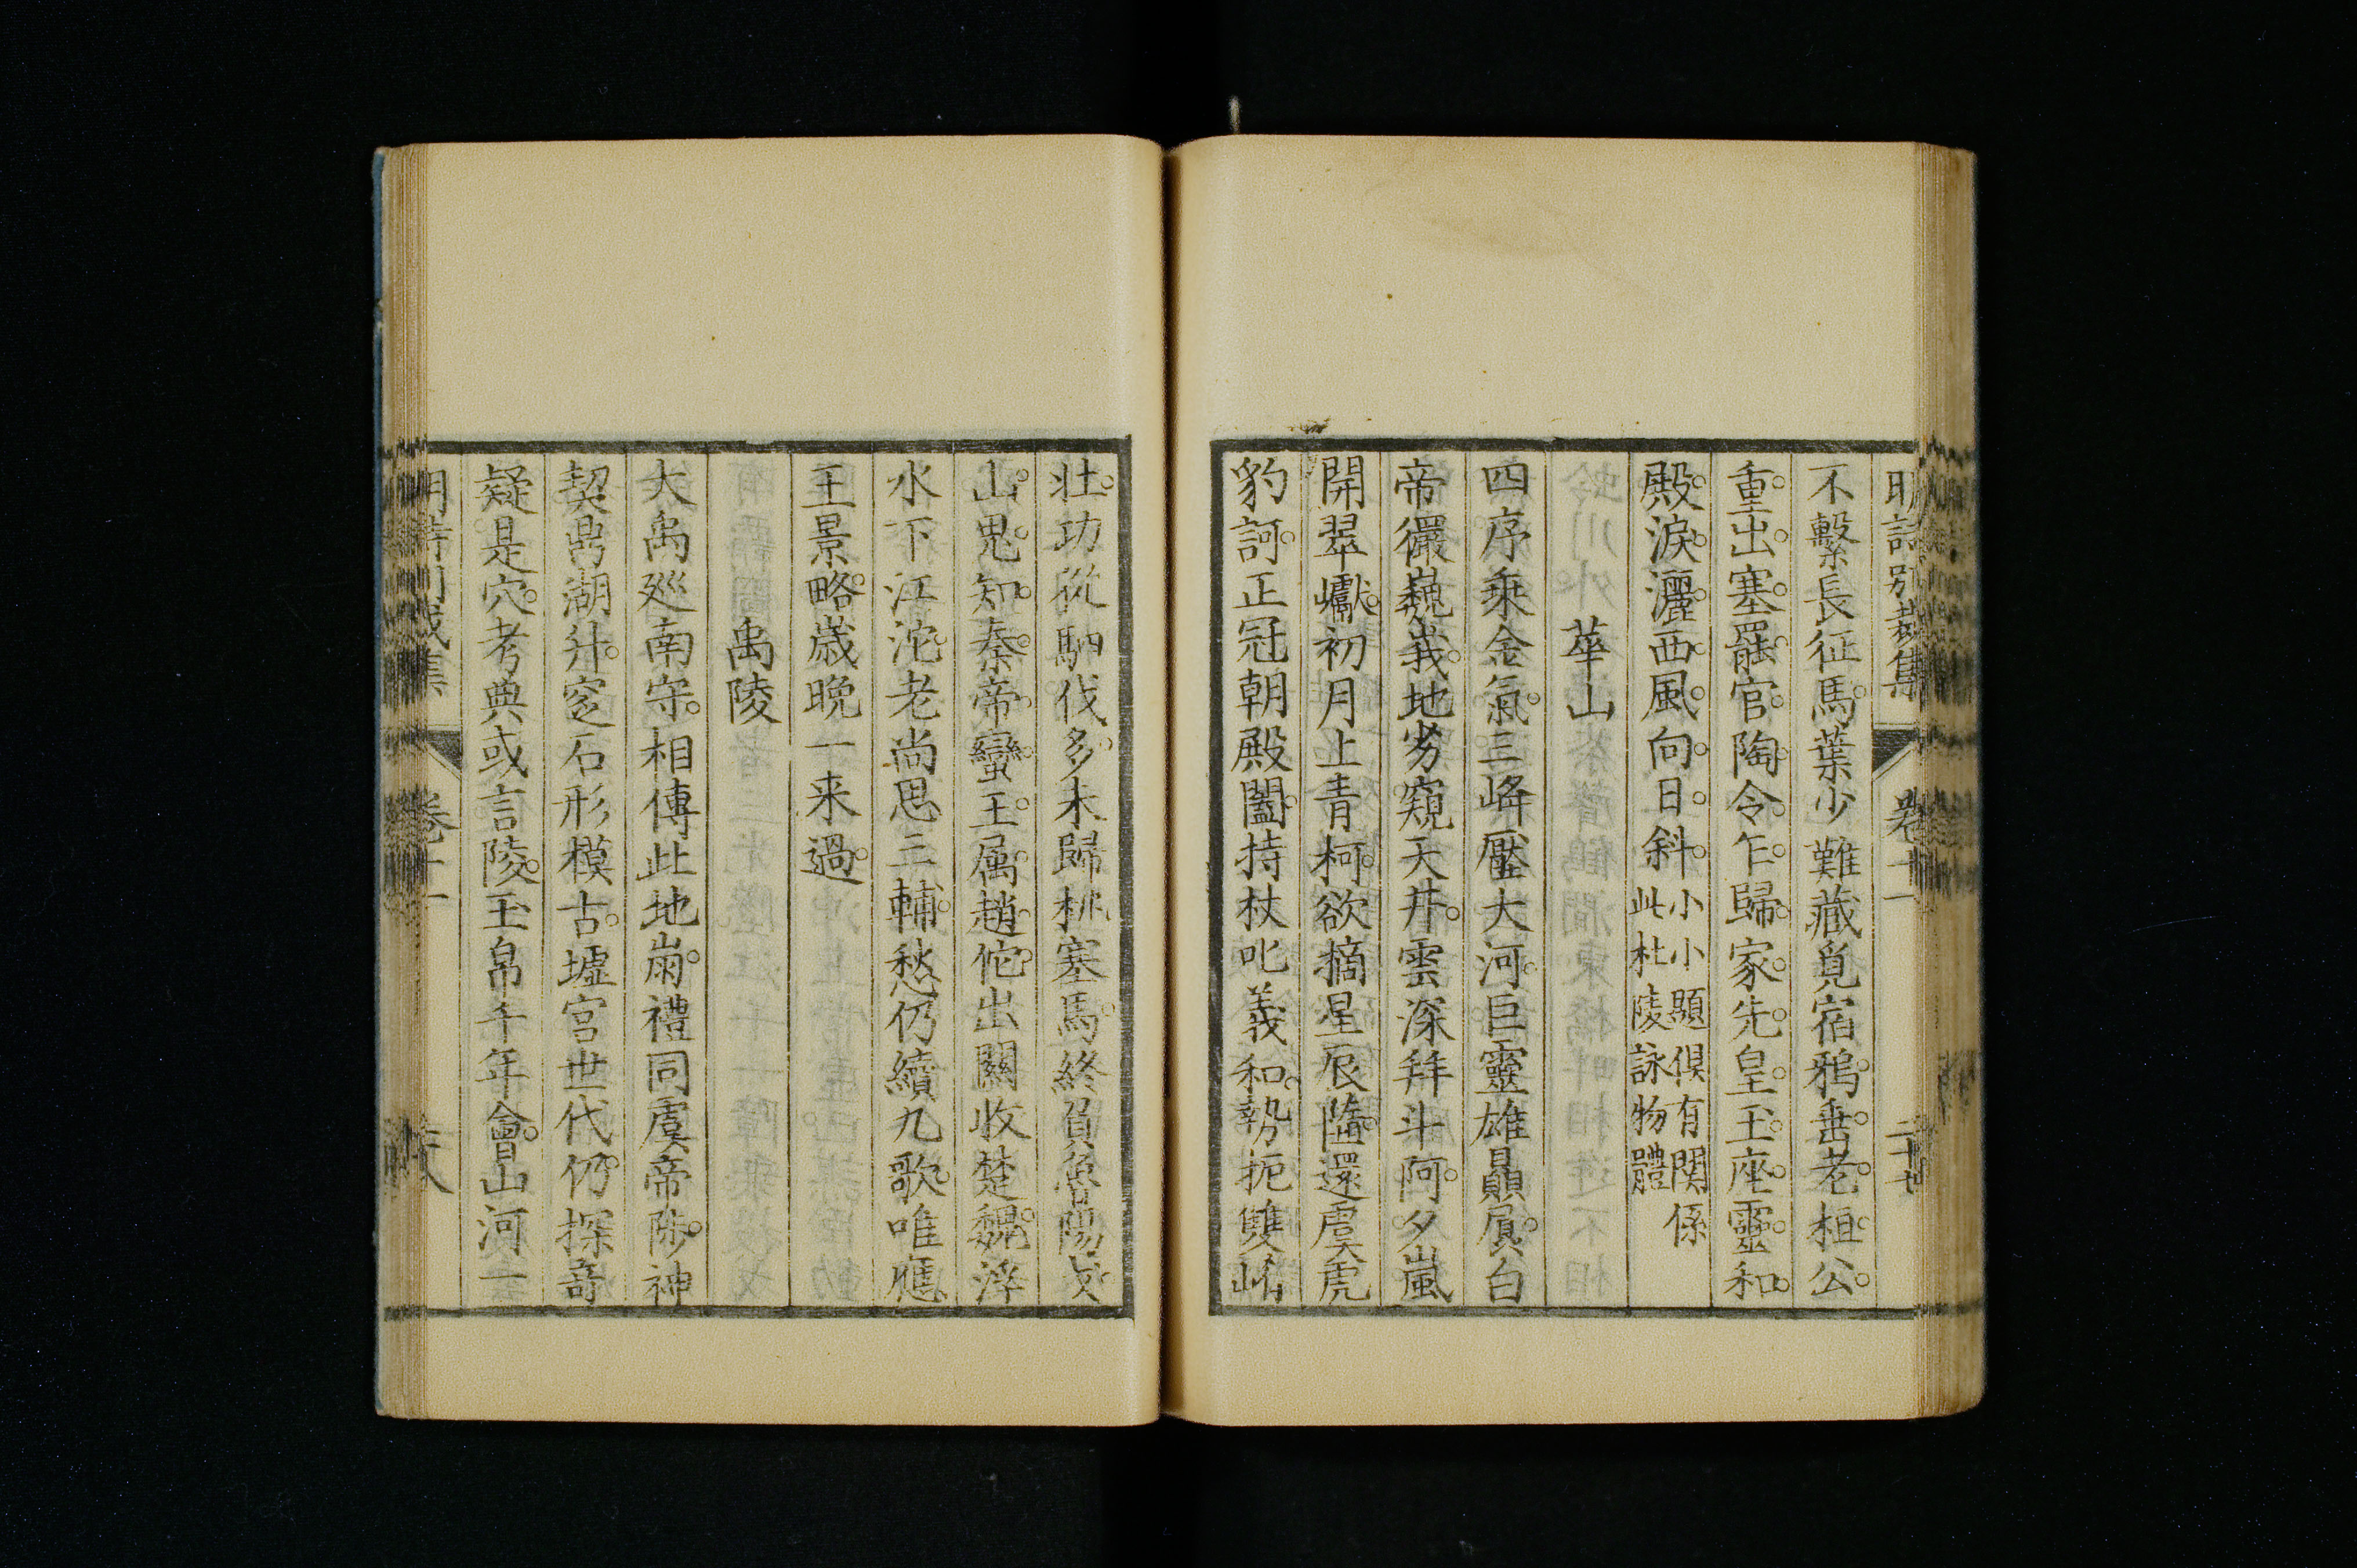 明詩別裁集 卷十一 二十七
不繫長征馬。葉少難藏覓宿鴉。垂老桓公。
重出塞。罷官陶令乍歸家。先皇玉座靈和
殿。淚灑西風向日斜。
小小題俱有関係
此杜陵詠物體
華山
四序乗金氣。三峰壓大河。巨靈雄贔屓。白
帝儼巍峩。地劣窺天井。雲深拜斗阿。夕嵐
開翠巘。初月上青柯。欲摘星辰墮。還虞虎
豹訶。正冠朝殿闔。持杖叱羲和。勢扼雙崤
壮。功從駟伐多。未歸桃塞馬。終負魯陽戈。
山鬼知秦帝。蠻王属趙佗。出關收楚魏。浮
水下江沱。老尚思三輔。愁仍續九歌。唯應
王景略。歳晚一来過。
禹陵
大禹廵南守。相傳此地崩。禮同虞帝陟。神
契鼎湖升。窆石形模古。墟宫世代仍。探竒
疑是穴。考典或言陵。玉帛千年會。山河一
卷十一